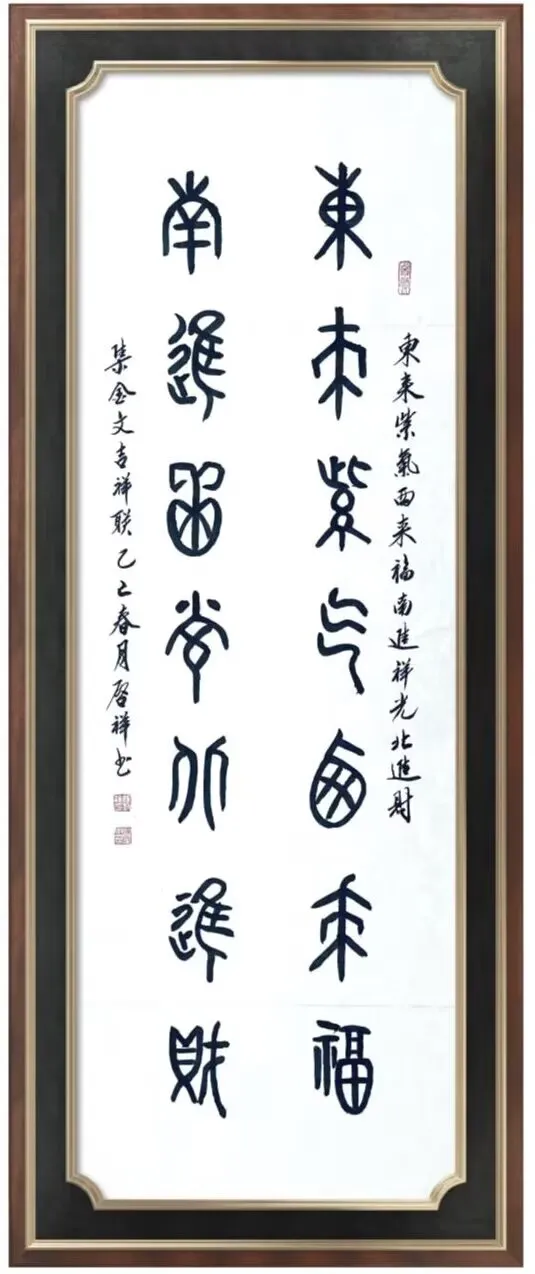 東来紫气西来福南進祥光北進財
東来紫气西来福
南進祥光北進財
集金文吉祥联乙巳春月启祥书